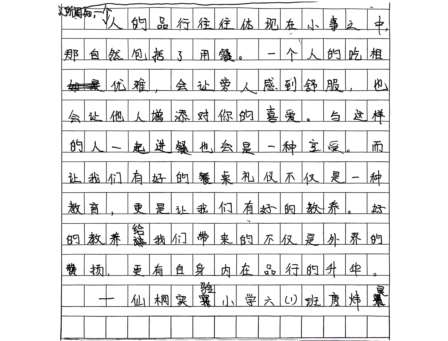 众所周知，一个人的品行往往体现在小事之中，
那自然包括了用餐。一个人的吃相
优雅，会让旁人感到舒服，也
会让他人增添对你的喜爱。与这样
的人一起进餐也会是一种享受。而
让我们有好的餐桌礼仪不仅是一种
教育，更是让我们有好的教养。好
的教养给我们带来的不仅是外界的
赞扬，更有自身内在品行的升华。
一仙桐实验小学六(1)班 炜